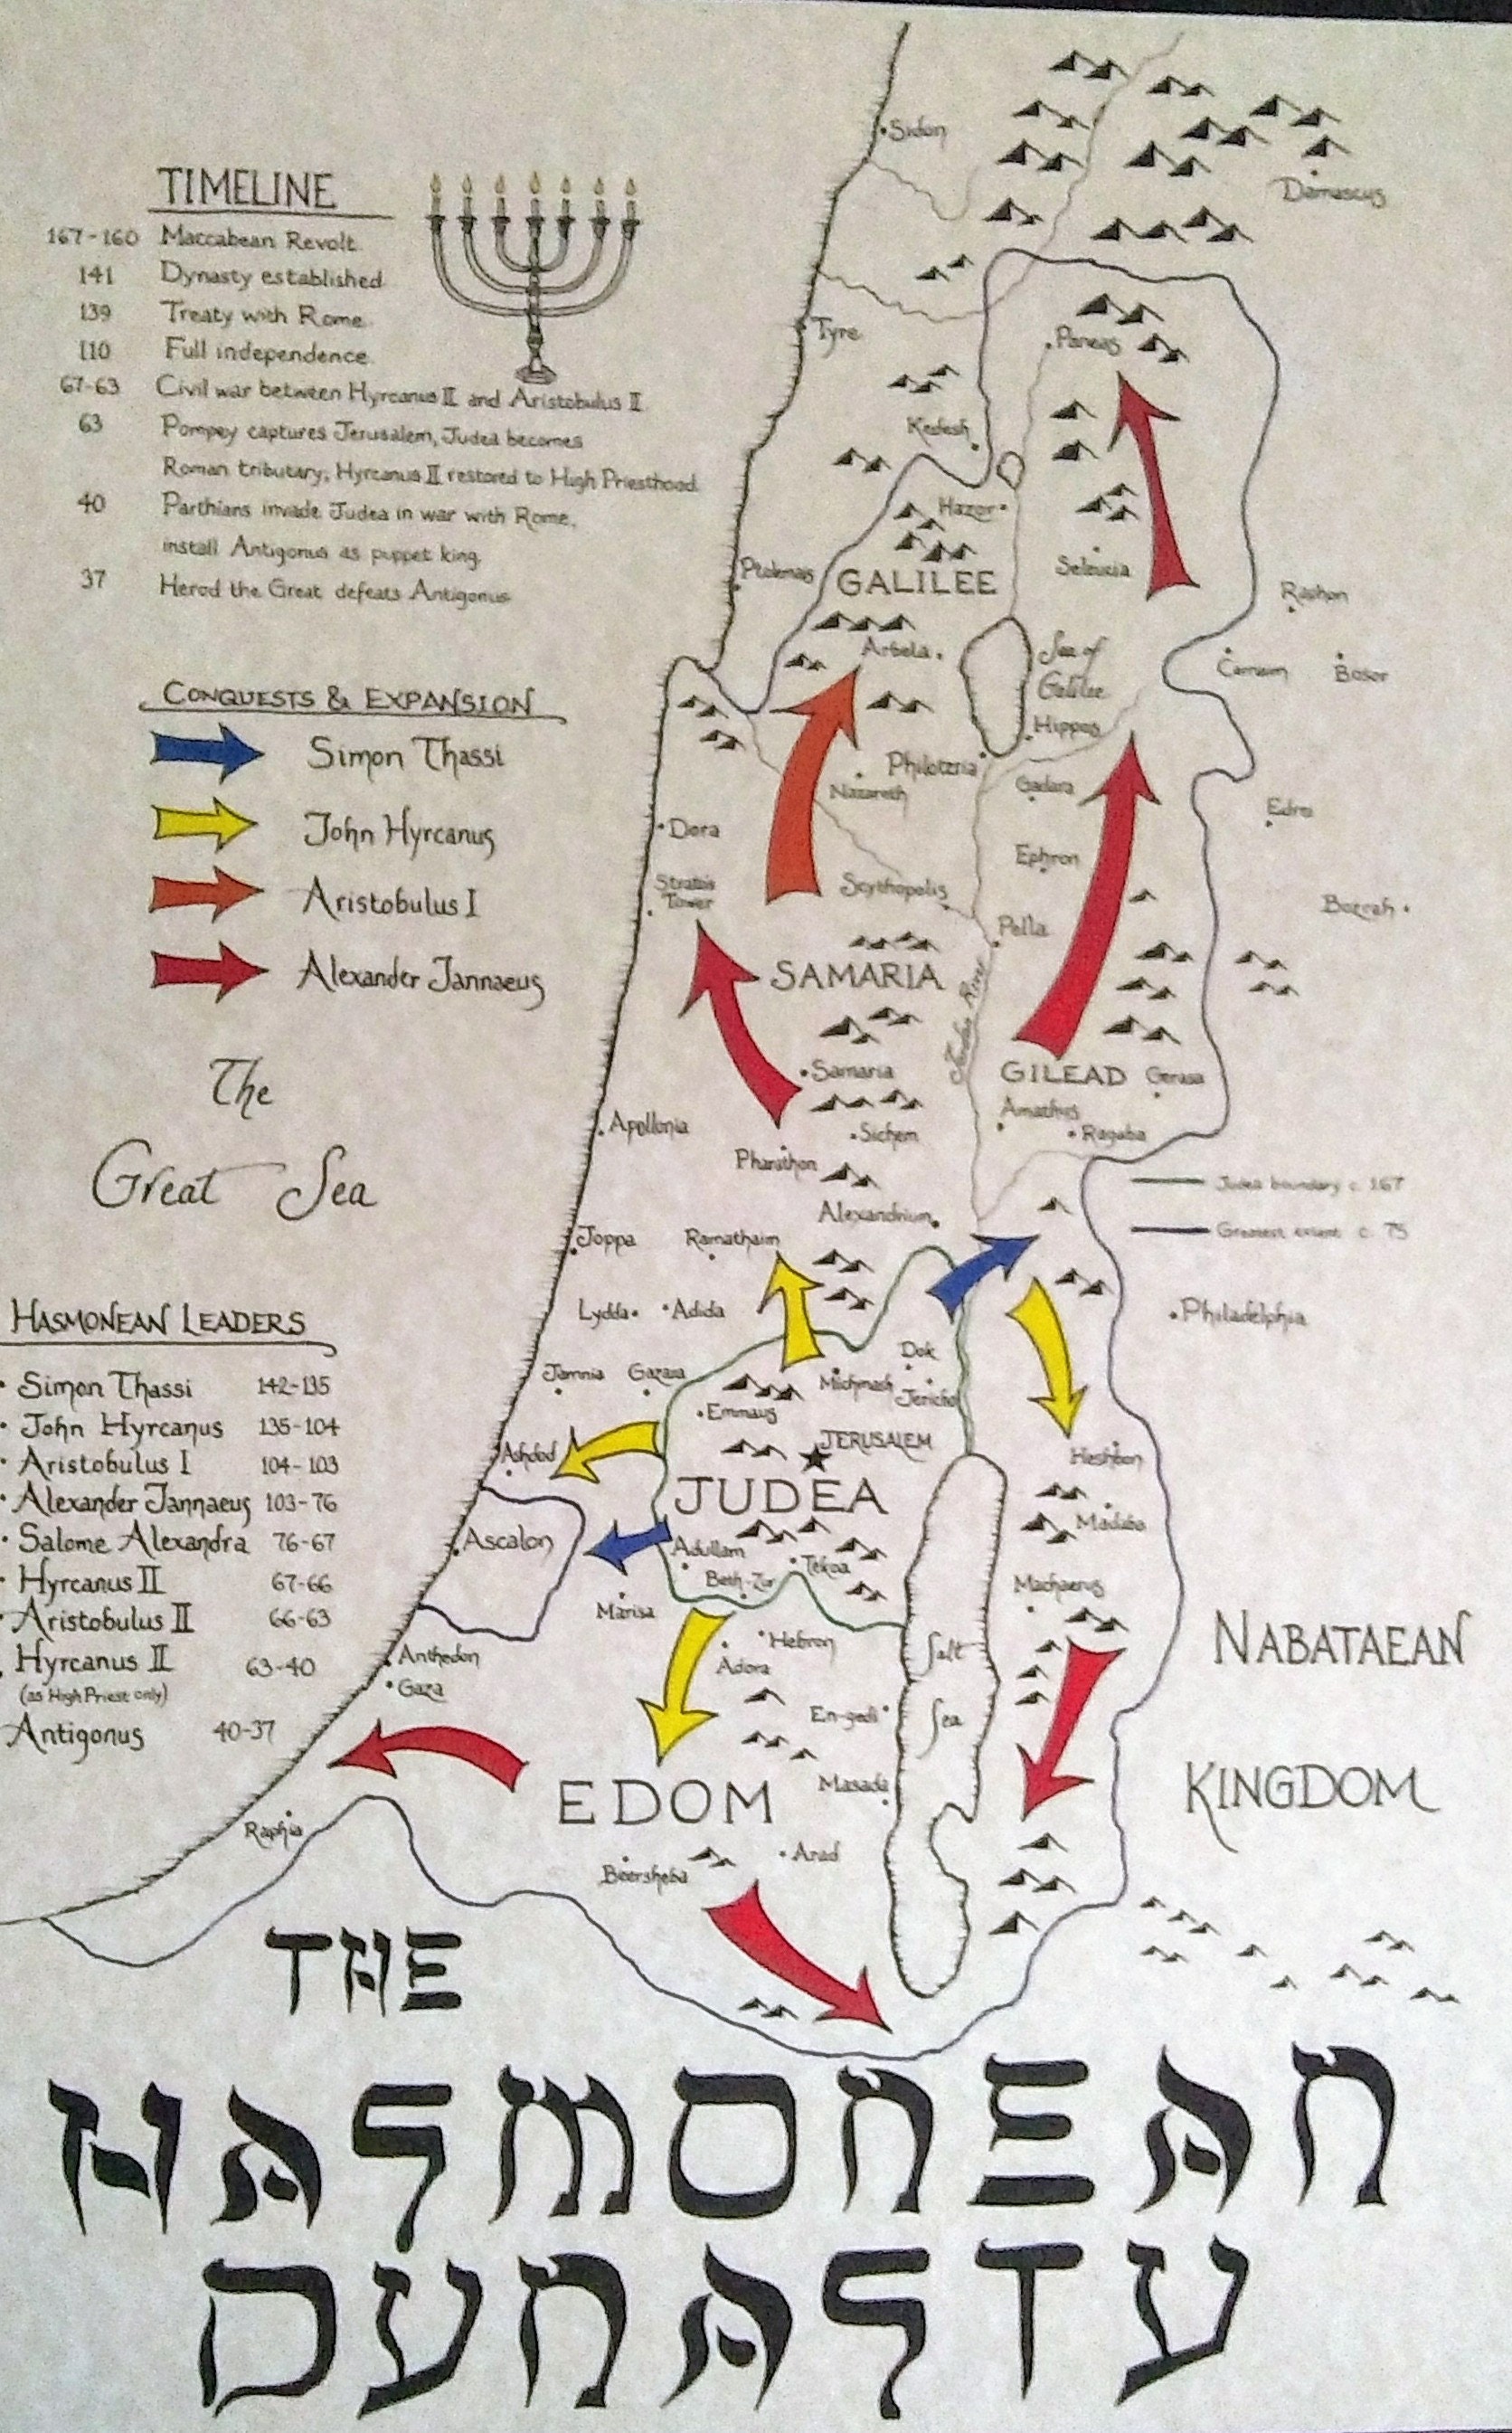 TIMELINE
167-160 Maccabean Revolt.
141 Dynasty established
139 Treaty with Rome.
110 Full independence.
67-63 Civil war between Hyrcanus II and Aristobulus II
63 Pompey captures Jerusalem, Judea becomes
Roman tributary; Hyrcanus II restored to High Priesthood.
40 Parthians invade Judea in war with Rome,
install Antigonus as puppet king.
37 Herod the Great defeats Antigonus
CONQUESTS & EXPANSION
Simon Thassi
John Hyrcanus
Aristobulus I
Alexander Jannaeus
The
Great Sea
HASMONEAN LEADERS
• Simon Thassi 142-135
• John Hyrcanus 135-104
• Aristobulus I 104-103
• Alexander Jannaeus 103-76
• Salome Alexandra 76-67
• Hyrcanus II 67-66
• Aristobulus II 66-63
• Hyrcanus II 63-40
(as High Priest only)
Antigonus 40-37
Sidon
Damascus
Tyre
Paneas
Kedesh
Hazor
Seleucia
Ptolemais
GALILEE
Arbela
Sea of
Galilee
Raphon
Carnaim
Bosor
Hippos
Philoteria
Nazareth
Gadara
Dora
Edrei
Ephron
Strato's
Tower
Scythopolis
Bozrah
Pella
SAMARIA
Jordan River
Samaria
GILEAD
Gerasa
Amathus
Ragaba
Apollonia
Sichem
Pharathon
Judea boundary c. 167
Alexandrium
Greatest extent c. 75
Joppa
Ramathaim
Lydda
Adida
Philadelphia
Dok
Jamnia
Gazara
Michmash
Jericho
Emmaus
Ashdod
JERUSALEM
Heshbon
JUDEA
Madaba
Ascalon
Adullam
Tekoa
Beth-Zur
Marisa
Machaerus
Hebron
Adora
Salt
Sea
NABATAEAN
KINGDOM
Anthedon
Gaza
En-gedi
EDOM
Masada
Raphia
Beersheba
Arad
THE
HASMONEAN
DYNASTY